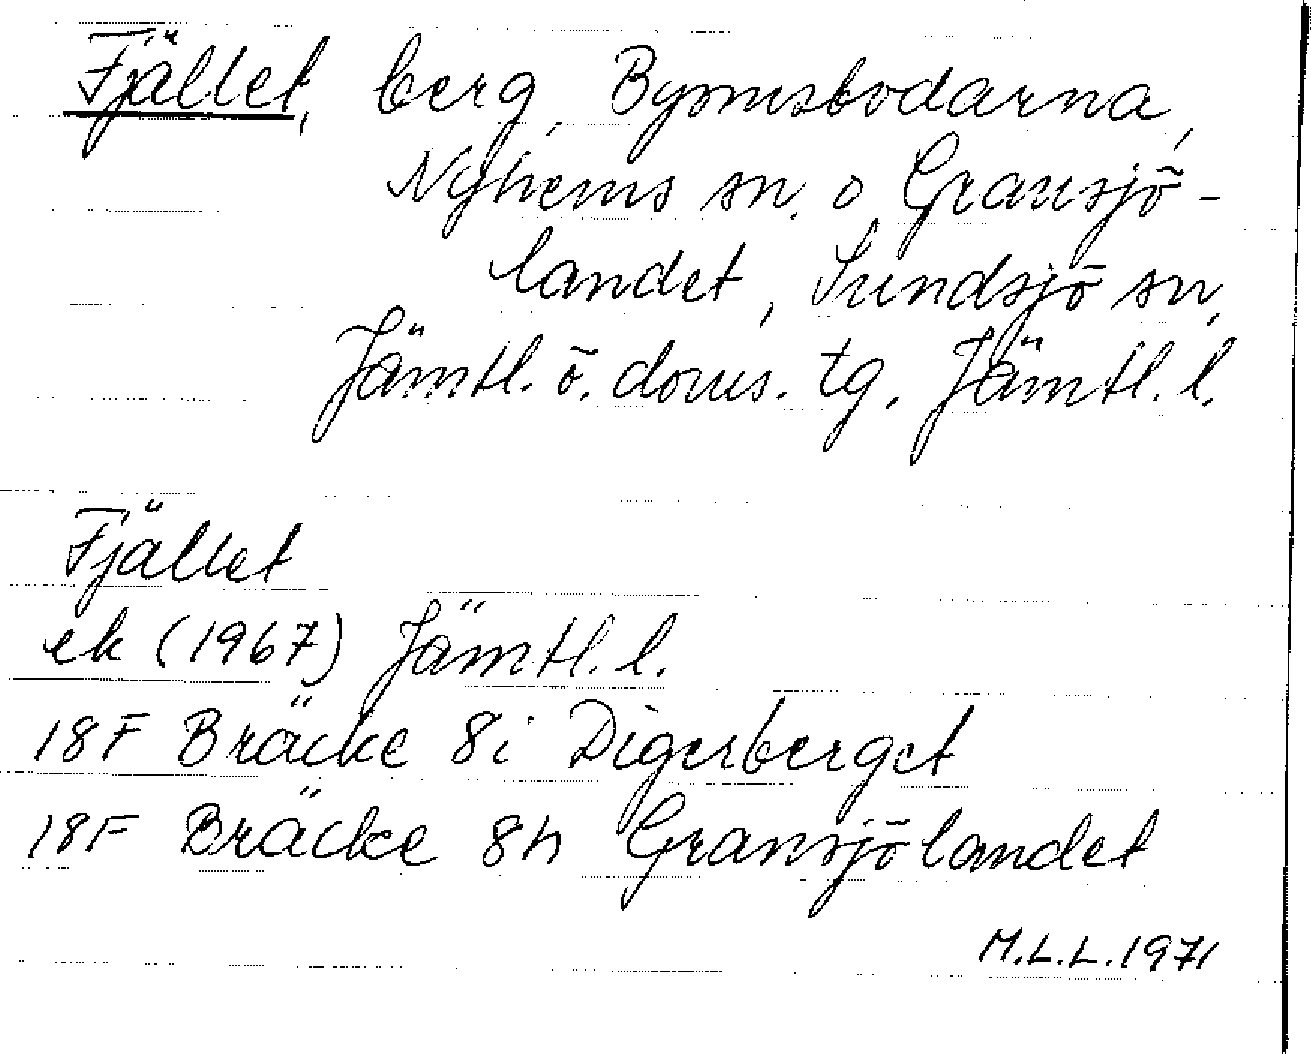 Fjället, berg, Bymsbodarna,
Nyhems sn. o. Gransjö-
landet, Sundsjö sn,
Jämtl. ö. doms. tg. Jämtl. l.
Fjället
ek (1967) Jämtl. l.
18F Bräcke 8i Digerberget
18F Bräcke 8h Gransjölandet
M.L.L. 1971